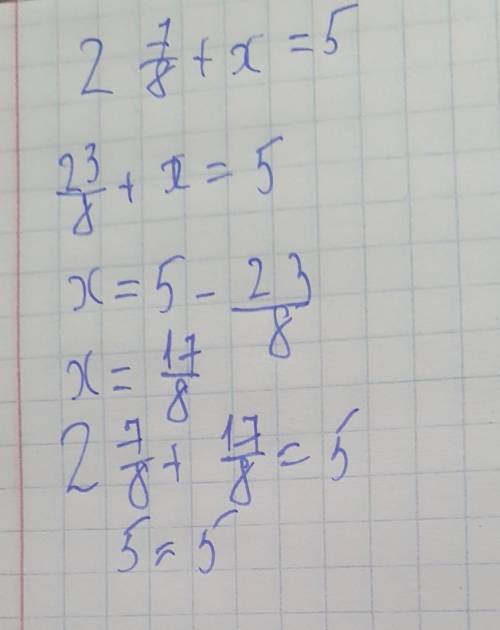 2 7/8 + x = 5
23/8 + x = 5
x = 5 - 23/8
x = 17/8
2 7/8 + 17/8 = 5
5 = 5